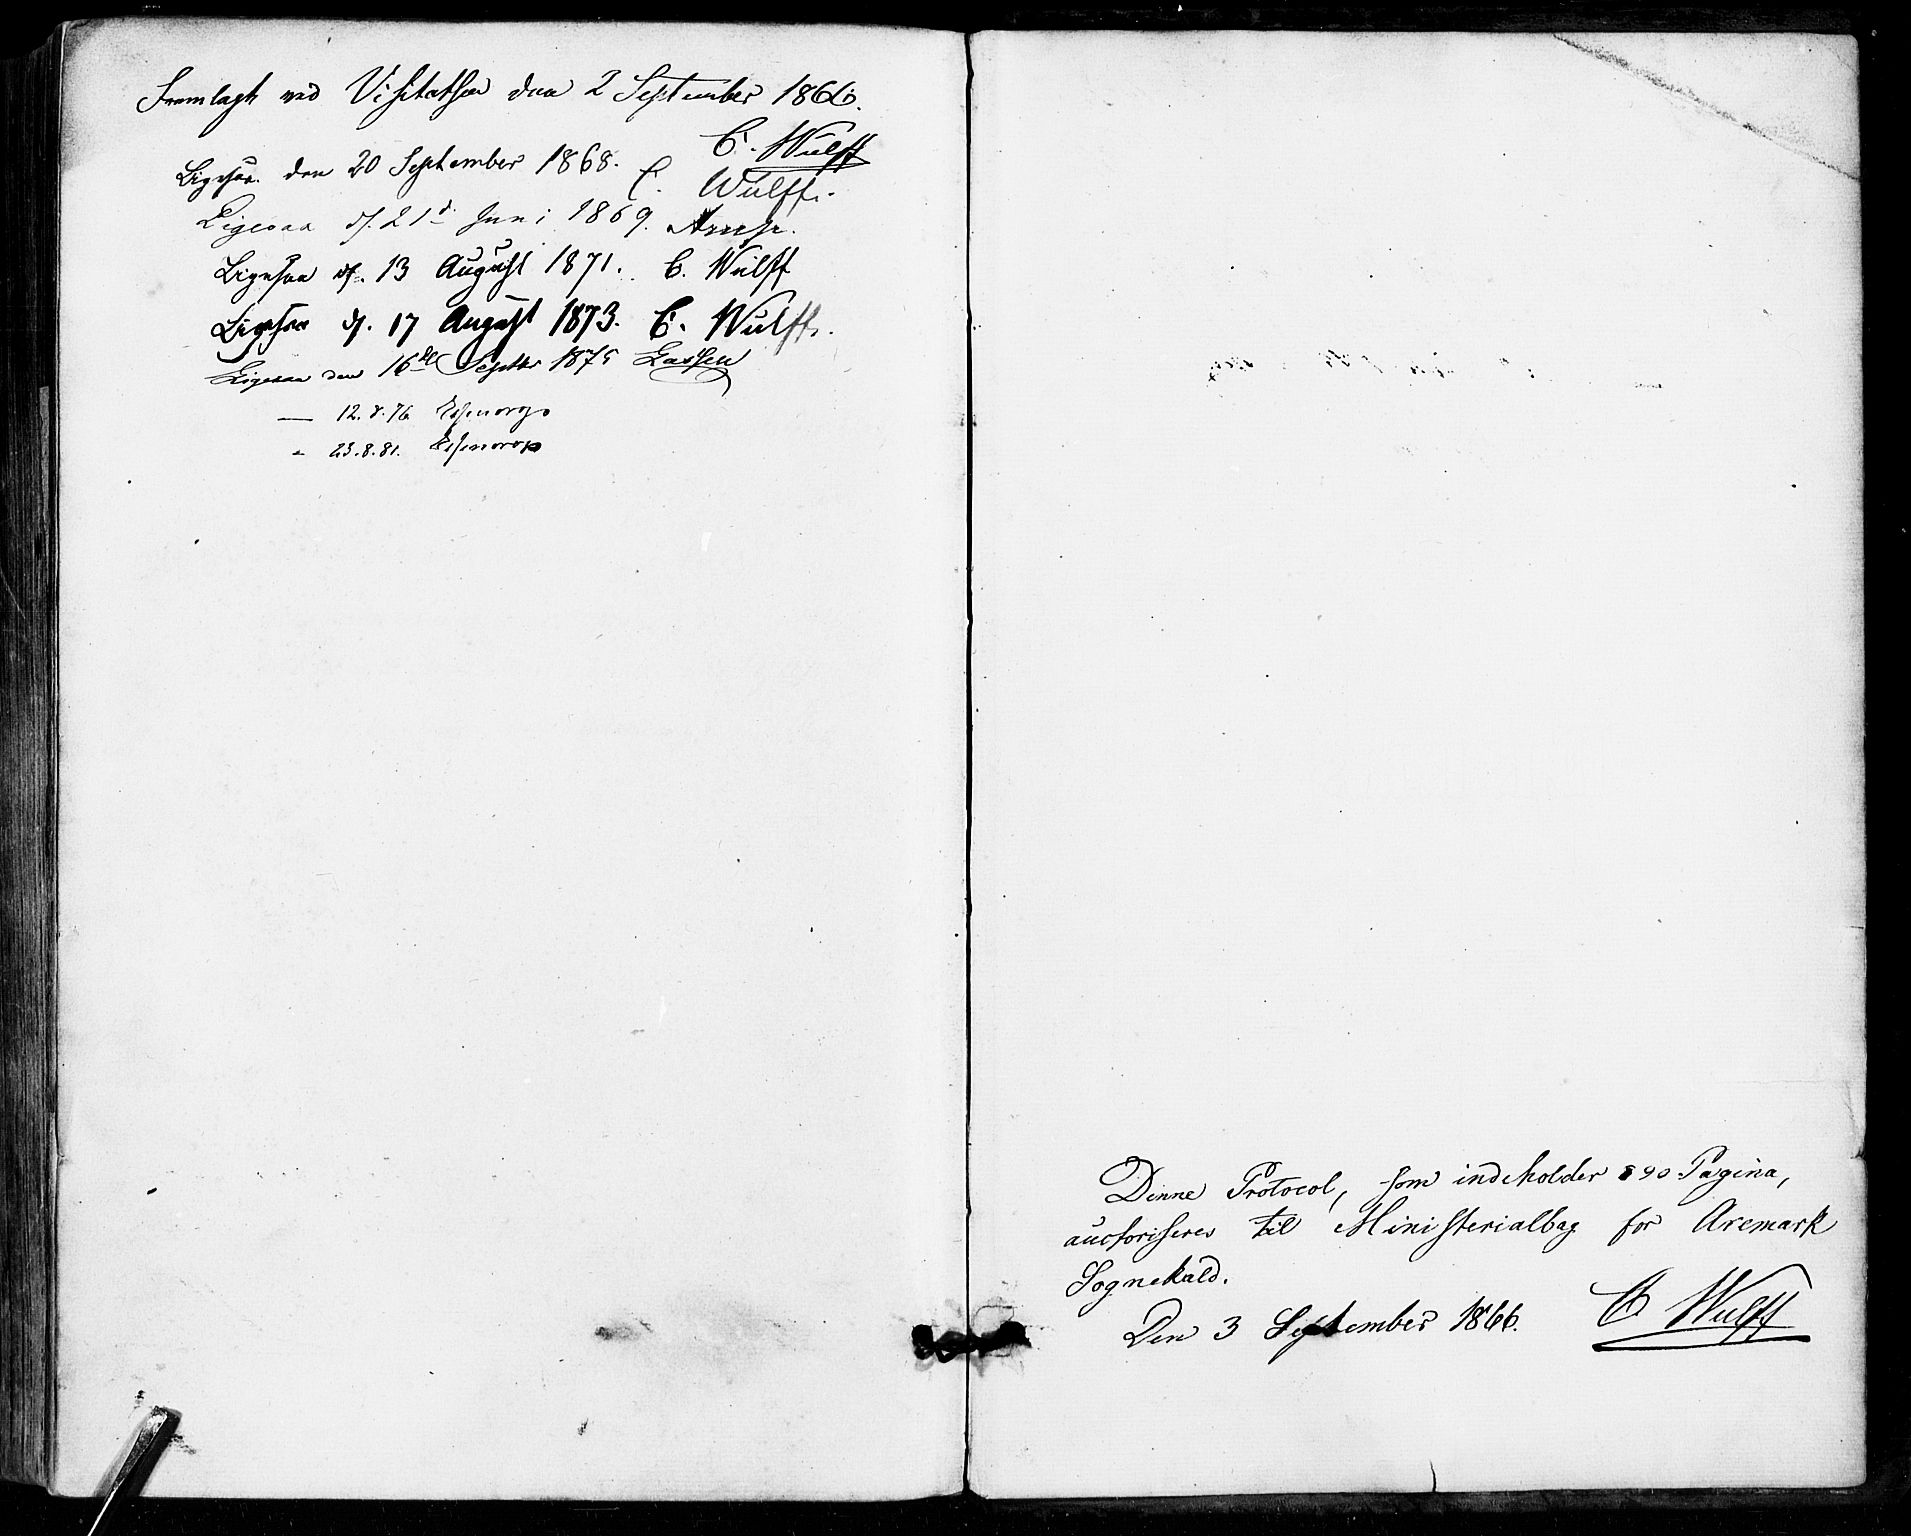 Fremlagt ved Visitatsen den 2 September 1866.
C. Wulff
Ligesaa. den 20 September 1868. C. Wulff.
Ligesaa d. 21d Juni 1869. Arup.
Ligesaa d. 13 August 1871. C. Wulff
Ligesaa d. 17 August 1873. C. Wulff.
Ligesaa den 16de Septbr 1875 Lassen
— 12.8.76 Essendrop
" 23.8.81. Essendrop
Denne Protocol, som indeholder 590 Pagina,
auctoriseres til Ministerialbog for Aremark
Sognekald.
Den 3 September 1866. C Wulff